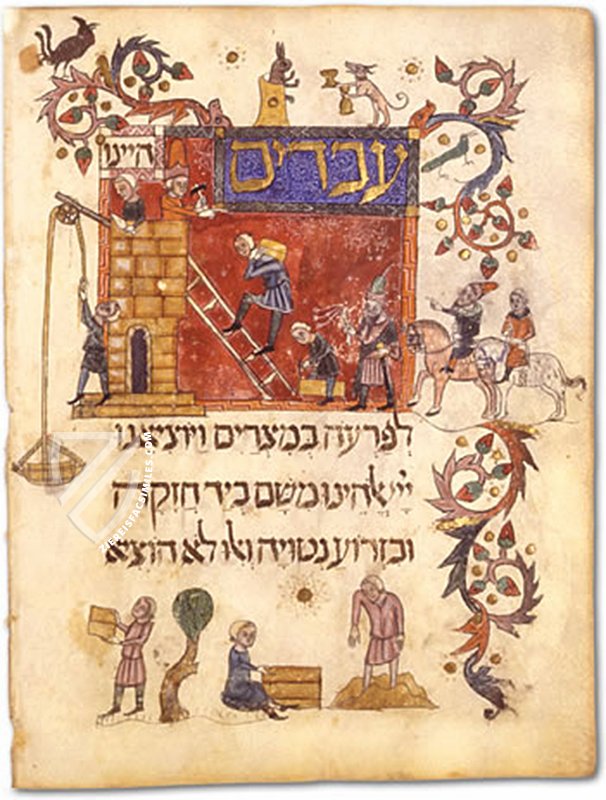 עבדים היינו
לפרעה במצרים ויוציאנו
יי אלהינו משם ביד חזקה
ובזרוע נטויה ואלו לא הוציא
ZIEREISFACSIMILES.COM